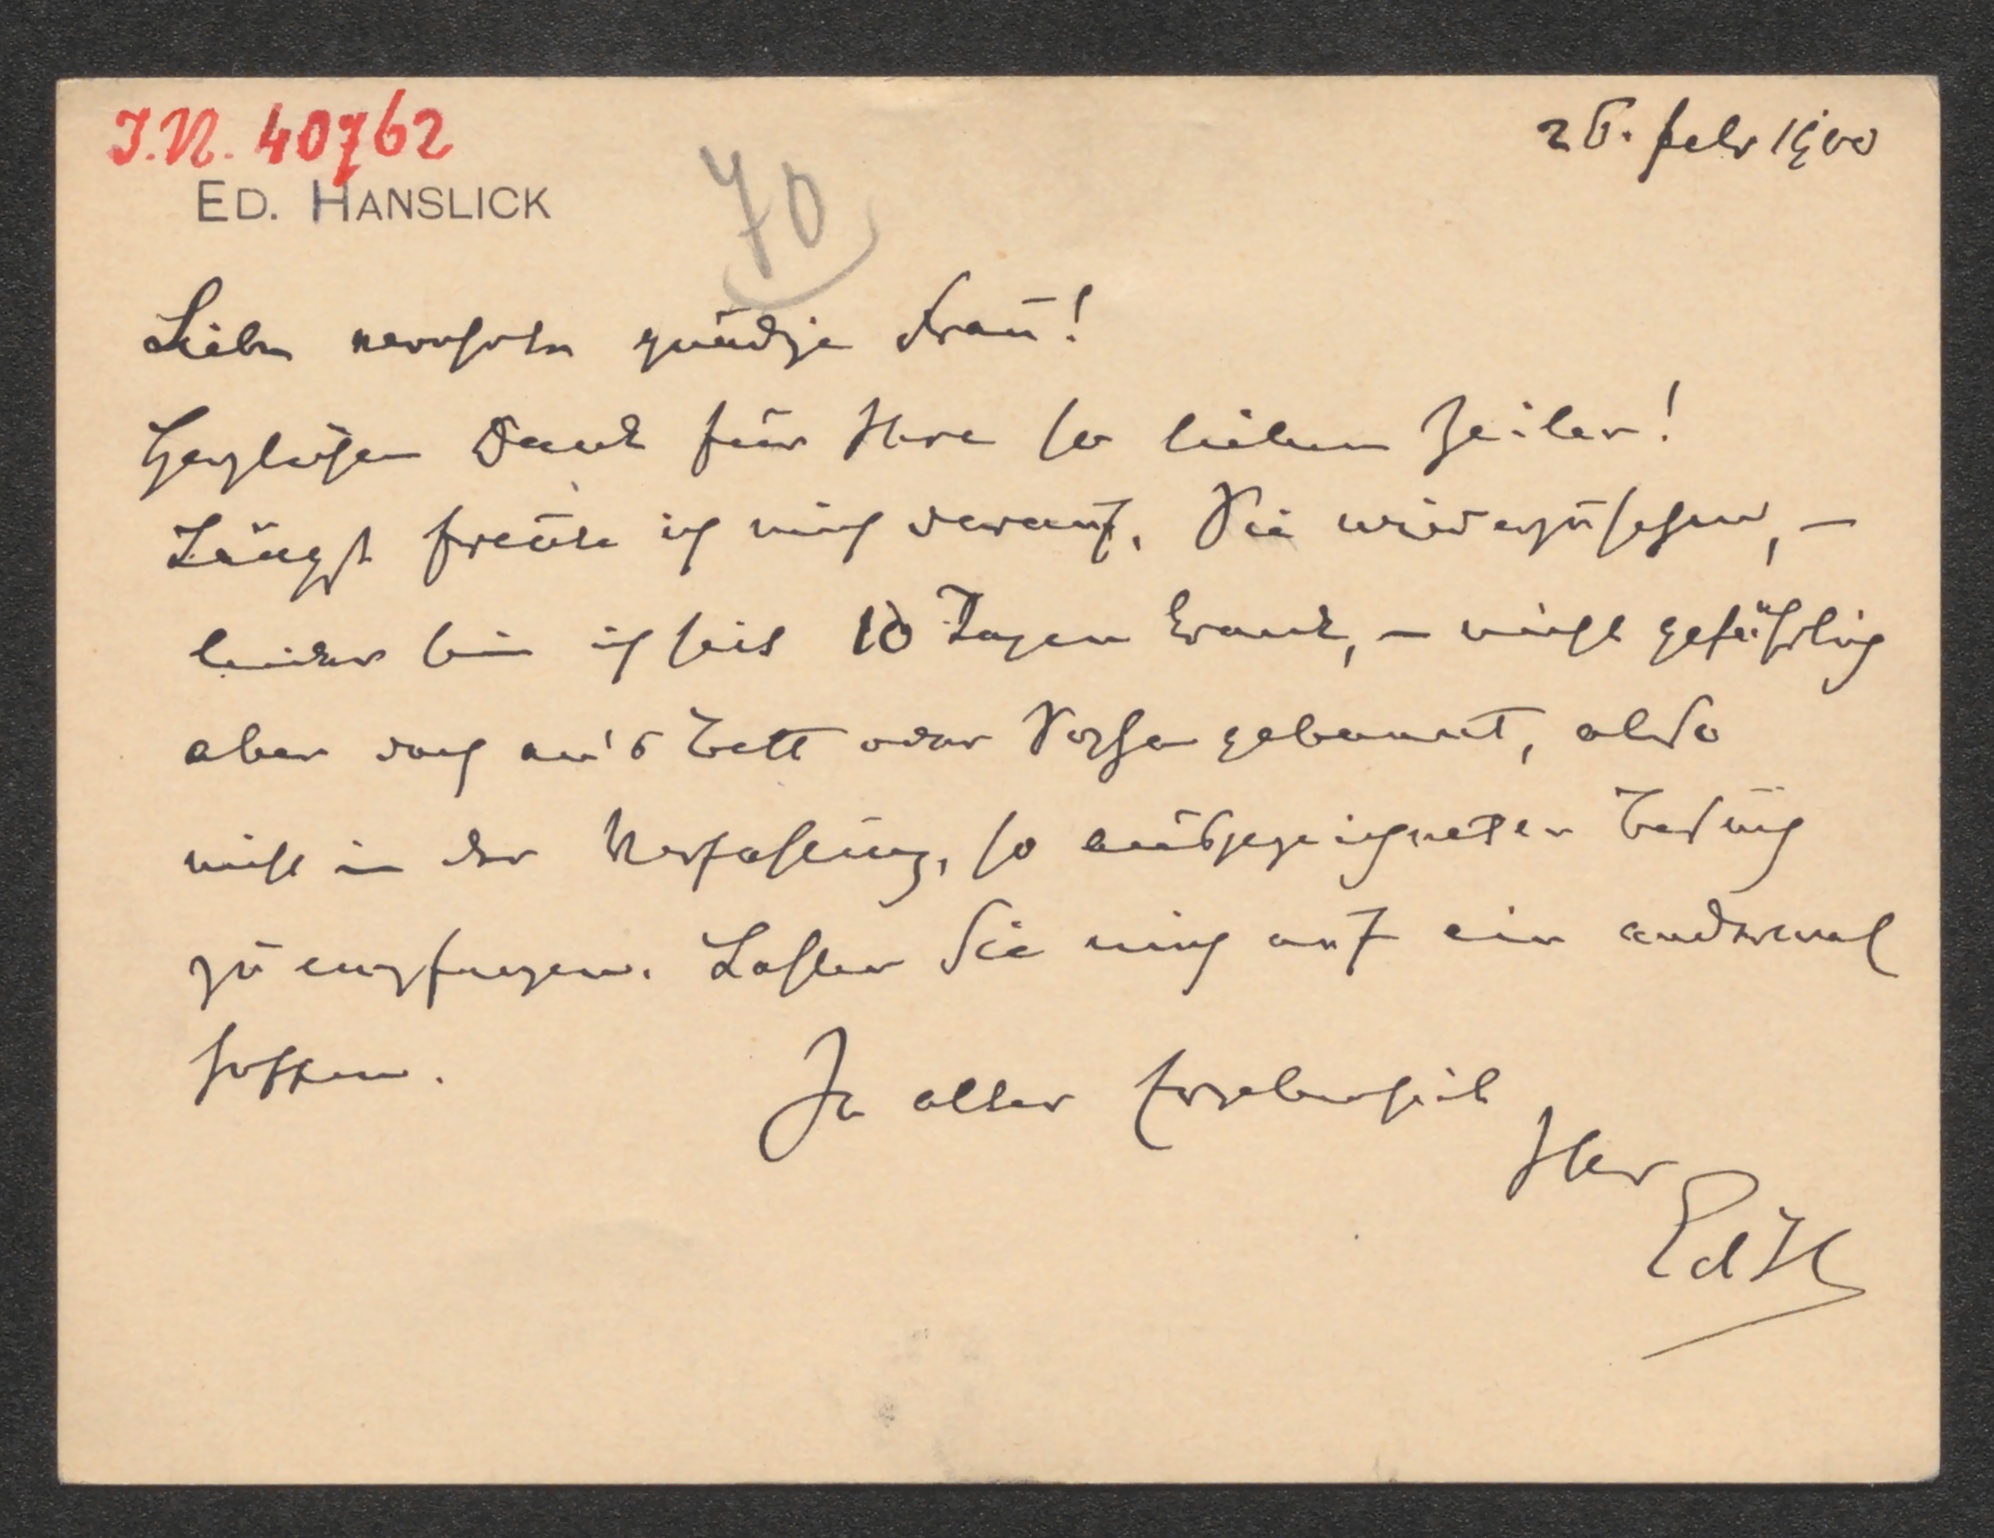 I.N. 40762
26. Febr 1900
ED. HANSLICK
70
Liebe verehrte gnädige Frau!
Herzlichen Dank für Ihre so lieben Zeilen!
Längst freute ich mich darauf, Sie wiederzusehen, –
leider bin ich seit 10 Tagen krank, – nicht gefährlich
aber doch an's Bett oder Sopha gebannt, also
nicht in der Verfassung, so ausgezeichneten Besuch
zu empfangen. Lassen Sie mich auf ein andermal
hoffen.
In aller Ergebenheit
Ihr
Ed H